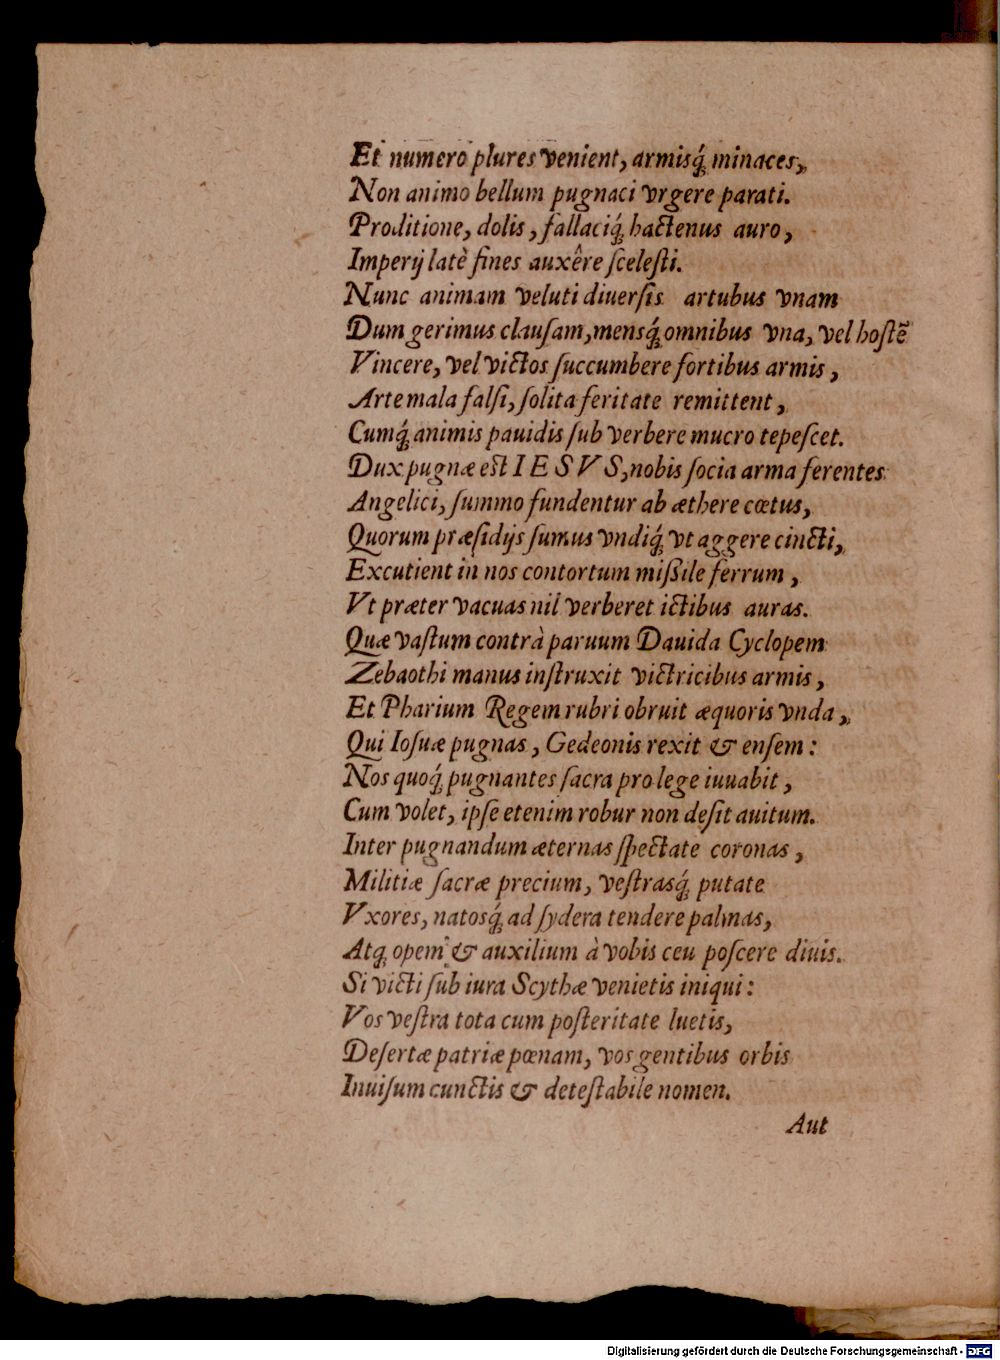 Et numero plures venient, armisq́; minaces,
Non animo bellum pugnaci vrgere parati.
Proditione, dolis, fallaciq́; hactenus auro,
Imperij latè fines auxêre ſceleſti.
Nunc animam veluti diuerſis artubus vnam
Dum gerimus clauſam, mensq́; omnibus vna, vel hoſtẽ
Vincere, vel victos ſuccumbere fortibus armis,
Arte mala falſi, ſolita feritate remittent,
Cumq́; animis pauidis ſub verbere mucro tepeſcet.
Dux pugnæ eſt IESVS, nobis ſocia arma ferentes
Angelici, ſummo fundentur ab æthere cœtus,
Quorum præſidijs ſumus vndiq́; vt aggere cincti,
Excutient in nos contortum miſsile ferrum,
Vt præter vacuas nil verberet ictibus auras.
Quæ vaſtum contrà paruum Dauida Cyclopem
Zebaothi manus inſtruxit victricibus armis,
Et Pharium Regem rubri obruit æquoris vnda,
Qui Ioſuæ pugnas, Gedeonis rexit & enſem:
Nos quoq́; pugnantes ſacra pro lege iuuabit,
Cum volet, ipſe etenim robur non deſit auitum.
Inter pugnandum æternas ſpectate coronas,
Militiæ ſacræ precium, veſtrasq́; putate
Vxores, natosq́; ad ſydera tendere palmas,
Atq; opem & auxilium à vobis ceu poſcere diuis.
Si victi ſub iura Scythæ venietis iniqui:
Vos veſtra tota cum poſteritate luetis,
Deſertæ patriæ pœnam, vos gentibus orbis
Inuiſum cunctis & deteſtabile nomen.
Aut
Digitalisierung gefördert durch die Deutsche Forschungsgemeinschaft - DFG